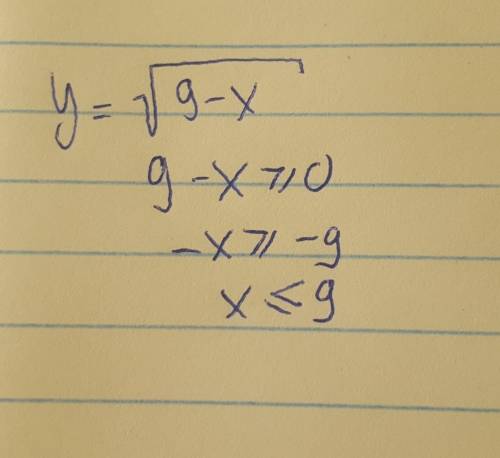 y = √(9-x)
9 - x ⩾ 0
-x ⩾ -9
x ⩽ 9